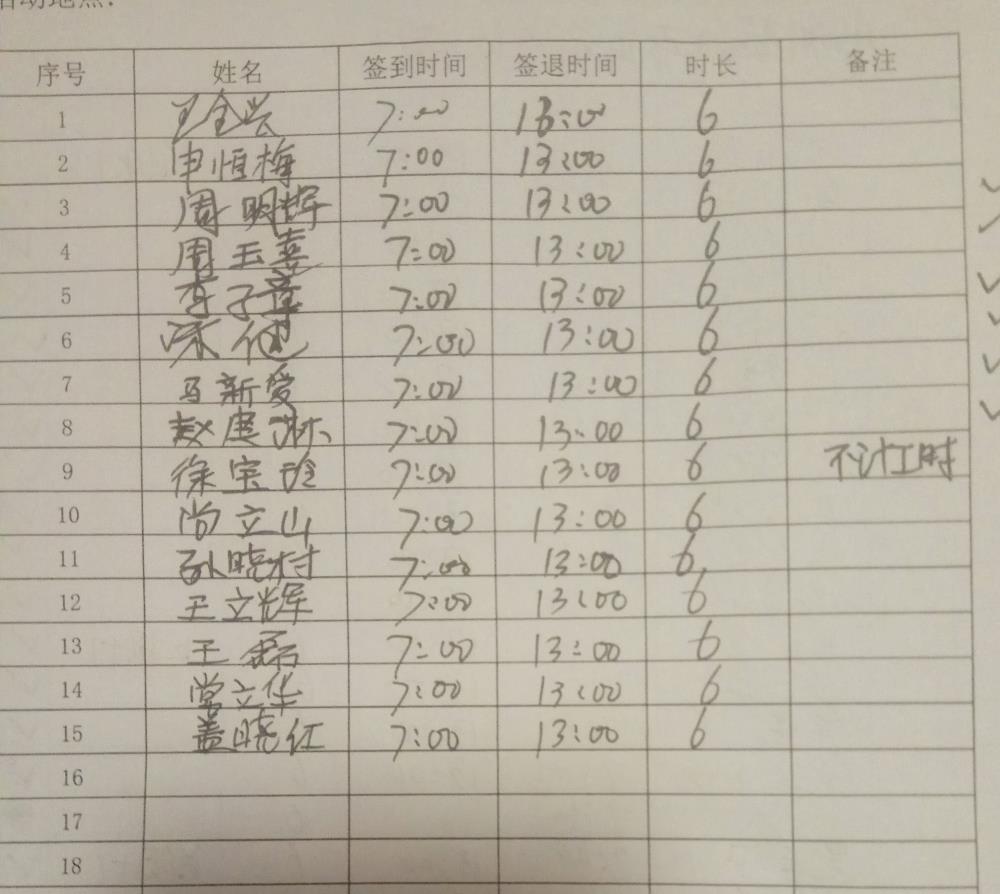 活动地点:
序号 姓名 签到时间 签退时间 时长 备注
1 王全兴 7:00 13:00 6
2 申恒梅 7:00 13:00 6
3 周明辉 7:00 13:00 6
4 周玉喜 7:00 13:00 6
5 李子章 7:00 13:00 6
6 7:00 13:00 6
7 马新爱 7:00 13:00 6
8 赵建林 7:00 13:00 6
9 徐宝玲 7:00 13:00 6 不计工时
10 尚立山 7:00 13:00 6
11 孙晓村 7:00 13:00 6
12 王立辉 7:00 13:00 6
13 王磊 7:00 13:00 6
14 常立华 7:00 13:00 6
15 盖晓红 7:00 13:00 6
16
17
18